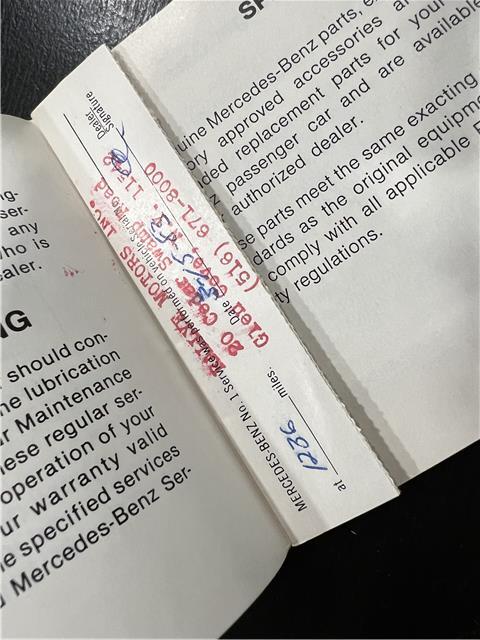 ng-
ser-
any
ho is
ealer.
NG
should con-
ne lubrication
r Maintenance
hese regular ser-
operation of your
ur warranty valid
e specified services
d Mercedes-Benz Ser-
MERCEDES-BENZ No. 1 Service was performed on vehicle
at 1236 miles.
Date
Dealer
Signature
MOTORS INC.
20 Cedar Swamp Road
Glen Cove N.Y. 11542
(516) 671-8000
SP
uine Mercedes-Benz parts,
ory approved accessories
ded replacement parts for your
passenger car and are available
authorized dealer.
se parts meet the same exacting
dards as the original equipm
comply with all applicable
ty regulations.